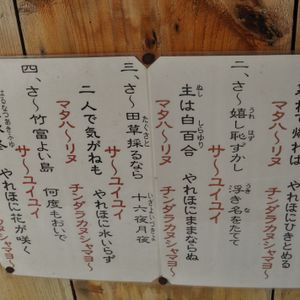 帰れば やれほにひきとめる
マタハ〜リヌ チンダラカヌシャマヨ〜
二、さ〜嬉し恥ずかし 浮き名をたてて
サ〜ユイユイ
主は白百合 やれほにままならぬ
マタハ〜リヌ チンダラカヌシャマヨ〜
三、さ〜田草採るなら 十六夜月夜
サ〜ユイユイ
二人で気がねも やれほに水いらず
マタハ〜リヌ チンダラカヌシャマヨ〜
四、さ〜竹富よい島 何度もおいで
サ〜ユイユイ
やれほに花が咲く
ヌシャマヨ〜